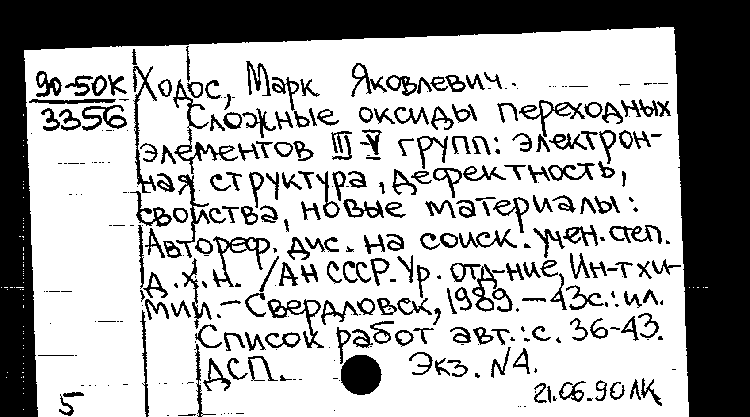 90-50К
3356
Ходос, Марк Яковлевич.
Сложные оксиды переходных
элементов III-V групп: электрон-
ная структура, дефектность,
свойства, новые материалы:
Автореф. дис. на соиск. учен. степ.
д.х.н. /АН СССР. Ур. отд-ние, Ин-т хи-
мии. - Свердловск, 1989. - 43с.: ил.
Список работ авт.: с. 36-43.
ДСП. Экз. N4.
5
21.06.90 ЛК